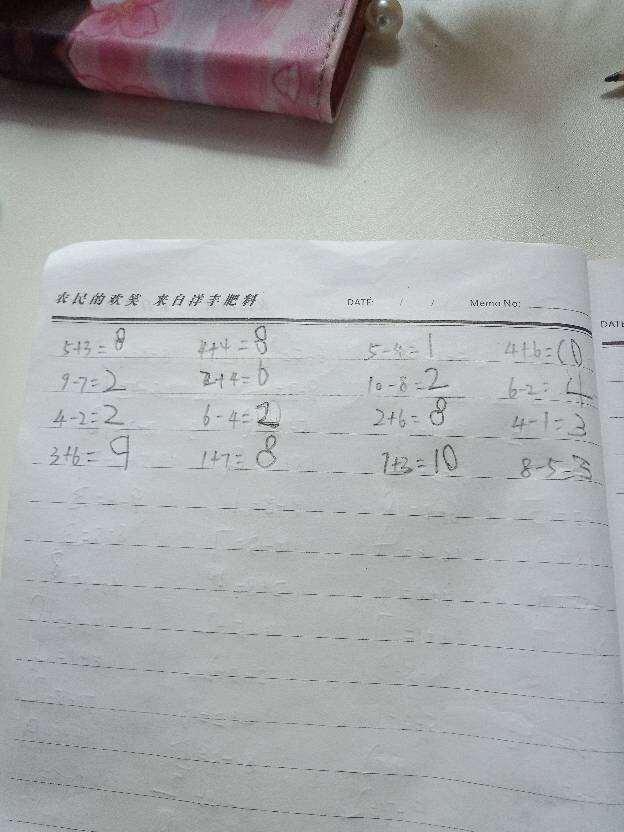 农民的欢笑 来自洋丰肥料 DATE: / / Memo No:
DATE
5+3=8 4+4=8 5-4=1 4+6=10
9-7=2 2+4=6 10-8=2 6-2=4
4-2=2 6-4=2 2+6=8 4-1=3
3+6=9 1+7=8 7+3=10 8-5=3